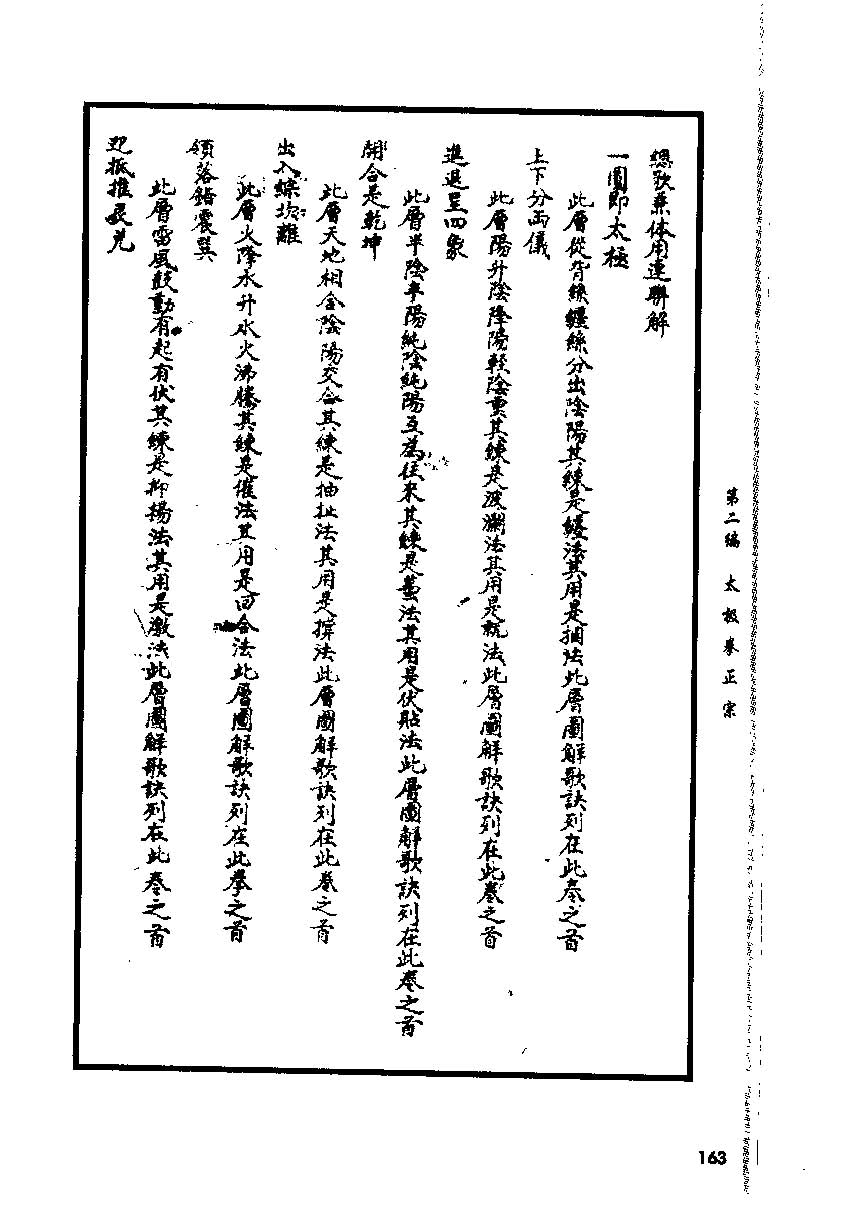 總歌兼体用連聯解
一圓即太極
此層從背絲纏絲分出陰陽其練是纏法其用是捆法此層圖解歌訣列在此卷之首
上下分両儀
此層陽升陰降陽輕陰重其練是波瀾法其用是就法此層圖解歌訣列在此卷之首
進退呈四象
此層半陰半陽純陰純陽互為往來其練是 法其用是伏貼法此層圖解歌訣列在此卷之首
開合是乾坤
此層天地相合陰陽交合其練是抽扯法其用是撐法此層圖解歌訣列在此卷之首
出入綜坎離
此層火降水升水火沸騰其練是催法其用是回合法此層圖解歌訣列在此拳之首
領落錯震巽
此層雷風鼓動有起有伏其練是抑揚法其用是激法此層圖解歌訣列在此卷之首
迎抵推艮兌
第二編 太极拳正宗
163